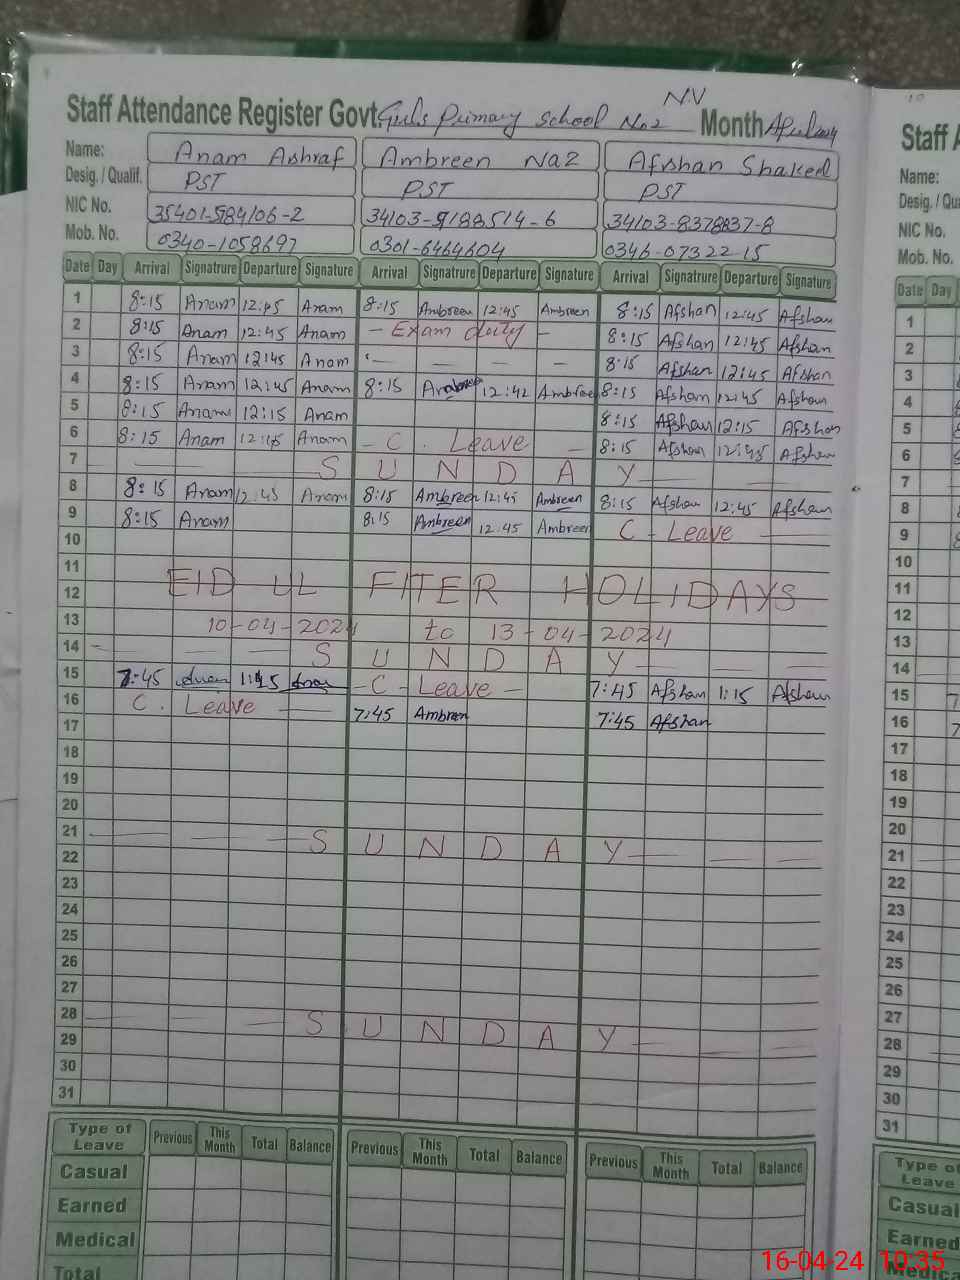 N.V
Staff Attendance Register Govt. Girls Primary School No2 Month
Name: Anam Ashraf Ambreen Naz Afshan Shakeel
Desig. / Qualif. PST PST PST
NIC No. 34103-8378837-8
Mob. No. 0340-1058697 0301-6464604 0346-0732215
Date Day Arrival Signatrure Departure Signature Arrival Signatrure Departure Signature Arrival Signatrure Departure Signature
1 8:15 Anam 12:45 Anam 8:15 Ambreen 12:45 Ambreen 8:15 Afshan 12:45 Afshan
2 8:15 Anam 12:45 Anam - Exam duty - 8:15 Afshan 12:45 Afshan
3 8:15 Anam 12:45 Anam 8:15 Afshan 12:45 Afshan
4 8:15 Anam 12:45 Anam 8:15 Ambreen 12:42 Ambreen 8:15 Afshan 12:45 Afshan
5 8:15 Anam 12:15 Anam 8:15 Afshan 12:15 Afshan
6 8:15 Anam 12:15 Anam - C. Leave - 8:15 Afshan 12:45 Afshan
7 SUNDAY
8 8:15 Anam 12:45 Anam 8:15 Ambreen 12:45 Ambreen 8:15 Afshan 12:45 Afshan
9 8:15 Anam 8:15 Ambreen 12:45 Ambreen C - Leave
10
11
12 EID UL FITER HOLIDAYS
13 10-04-2024 to 13-04-2024
14 SUNDAY
15 7:45 1:15 - C - Leave - 7:45 Afshan 1:15 Afshan
16 C. Leave 7:45 Ambreen 7:45 Afshan
17
18
19
20
21 SUNDAY
22
23
24
25
26
27
28 SUNDAY
29
30
31
Type of Leave Previous This Month Total Balance Previous This Month Total Balance Previous This Month Total Balance
Casual
Earned
Medical
Total
10
Staff A
Name:
Desig. / Qua
NIC No.
Mob. No.
Date Day
1
2
3
4
5
6
7
8
9
10
11
12
13
14
15
16
17
18
19
20
21
22
23
24
25
26
27
28
29
30
31
Type of Leave
Casual
Earned
Medica
16-04-24 10:35